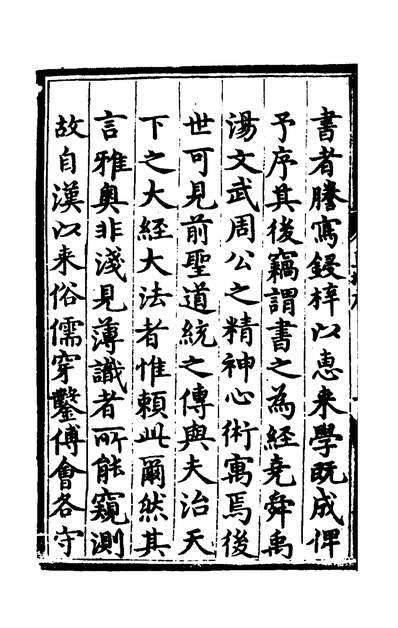 書者謄寫鋟梓以惠来學既成俾
予序其後竊謂書之為經堯舜禹
湯文武周公之精神心術寓焉後
世可見前聖道統之傳與夫治天
下之大經大法者惟賴此爾然其
言雅奥非淺見薄識者所能窺測
故自漢以来俗儒穿鑿傅會各守